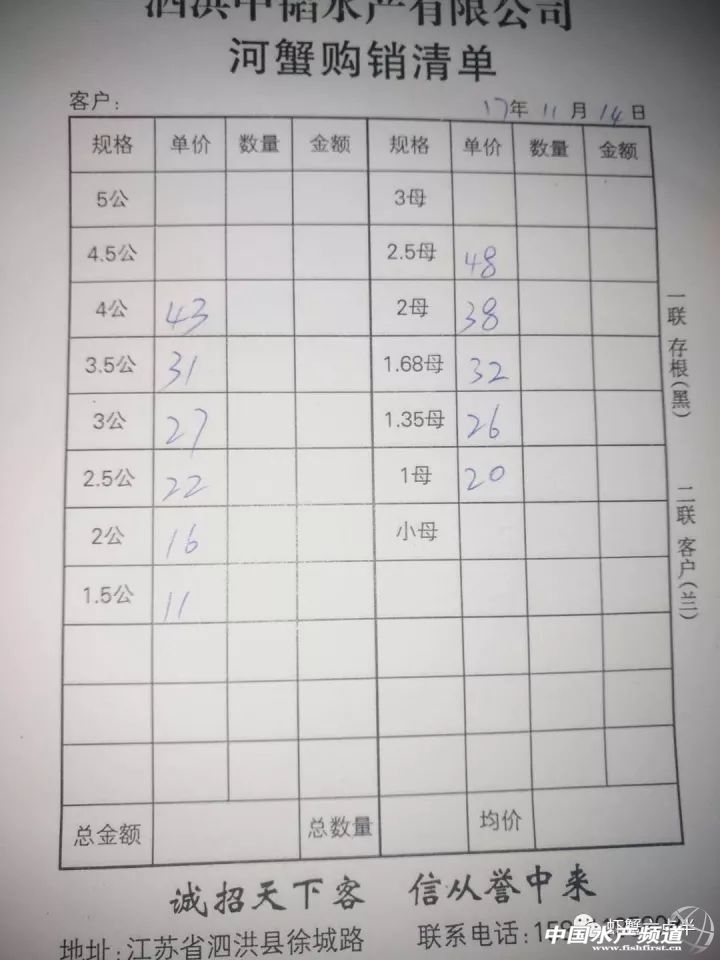 泗洪中韬水产有限公司
河蟹购销清单
客户: 17年11月14日
规格 单价 数量 金额 规格 单价 数量 金额
5公 3母
4.5公 2.5母 48
4公 43 2母 38
3.5公 31 1.68母 32
3公 27 1.35母 26
2.5公 22 1母 20
2公 16 小母
1.5公 11
总金额 总数量 均价
一联 存根(黑)
二联 客户(兰)
诚招天下客 信从誉中来
地址:江苏省泗洪县徐城路 联系电话:159
虾蟹一点半
中国水产频道
www.fishfirst.cn